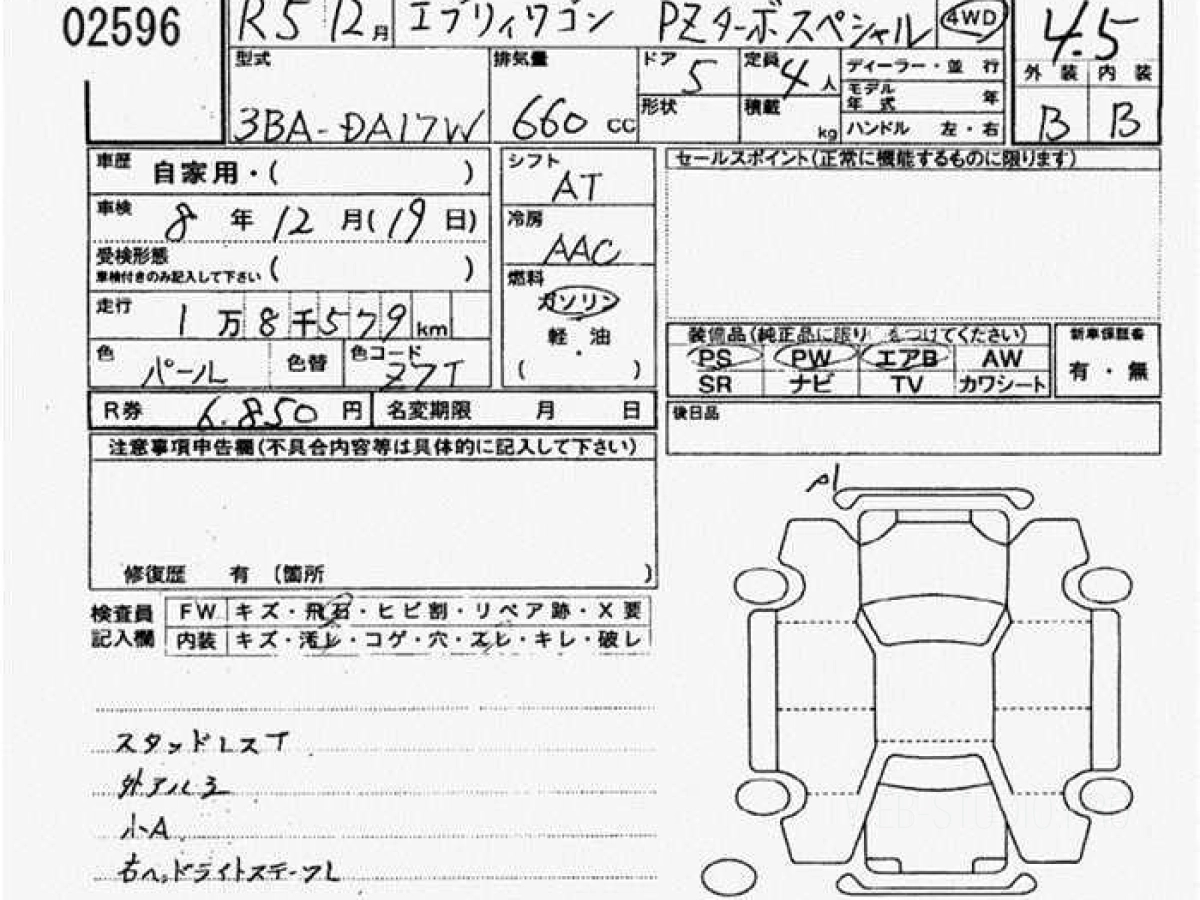 02596
R5 12月 エブリィワゴン PZターボスペシャル 4WD 4.5
型式 排気量 ドア 5 定員 4人 ディーラー・並行 外装 内装
モデル年式 年
3BA-DA17W 660 CC 形状 積載 kg ハンドル 左・右 B B
車歴 自家用・( ) シフト AT セールスポイント(正常に機能するものに限ります)
車検 8年12月(19日) 冷房 AAC
受検形態 車検付きのみ記入して下さい ( ) 燃料 ガソリン
走行 1万8千579km 軽油 装備品(純正品に限り をつけてください) 新車保証書
色 パール 色替 色コード Z7T ( ) PS PW エアB AW 有・無
SR ナビ TV カワシート
R券 6,850円 名変期限 月 日 後日品
注意事項申告欄(不具合内容等は具体的に記入して下さい)
修復歴 有 (箇所 )
検査員 FW キズ・飛石・ヒビ割・リペア跡・X要
記入欄 内装 キズ・汚レ・コゲ・穴・スレ・キレ・破レ
スタッドレスT
外アルミ
小A
右ヘッドライトステーワレ